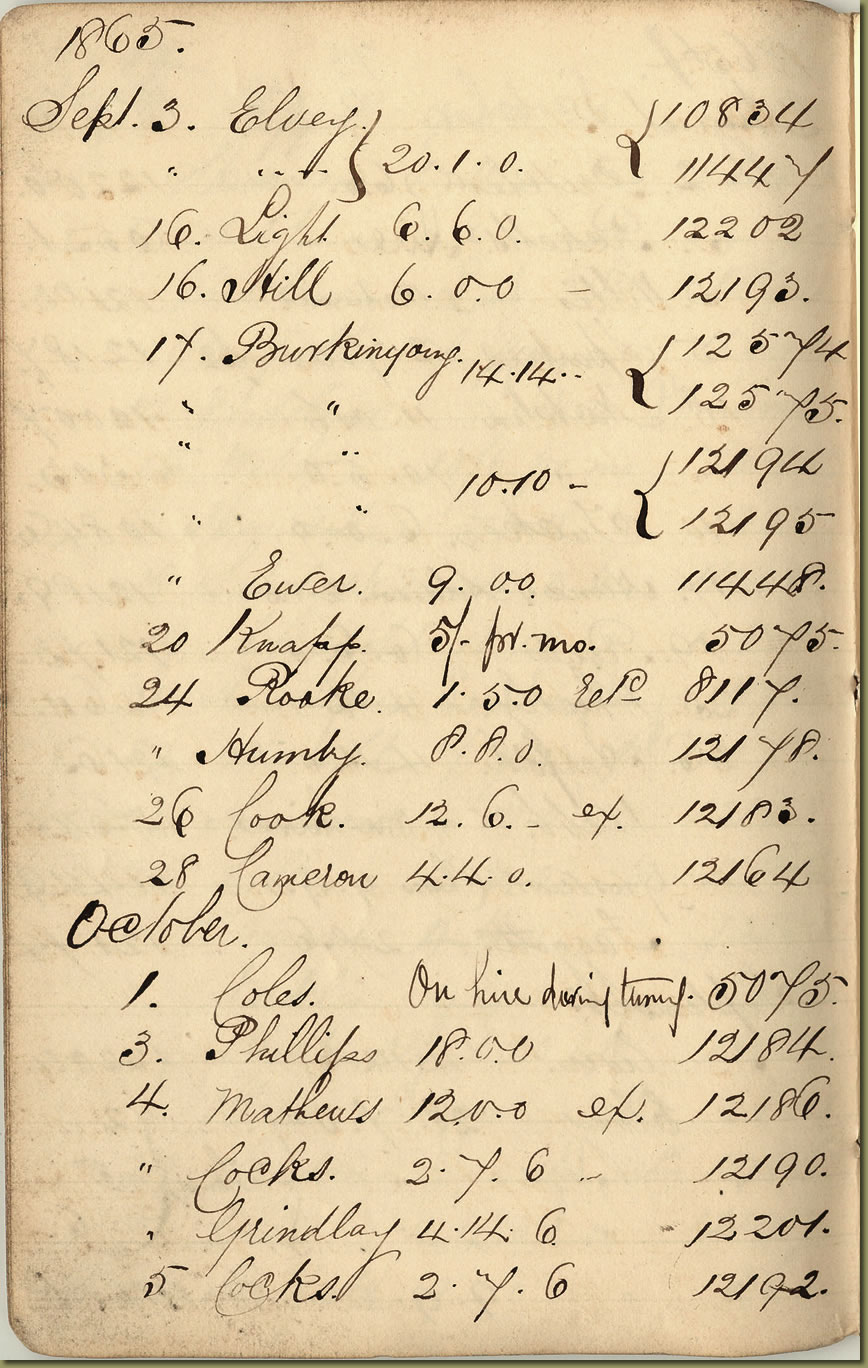 1865.
Sept. 3. Elvey } 20.1.0. { 10834
" " 11447
16. Light 6.6.0. 12202
16. Hill 6.0.0 – 12193.
17. Burkinyoung. 14.14.. { 12574
" " 12575.
" " { 12194
10.10 –
" " 12195
" Ewer. 9.00. 11448.
20 Knapp. 5/- pr. mo. 5075.
24 Rooke. 1.5.0 8117.
" Humby. 8.8.0. 12178.
26 Cook. 12.6.– ex. 12183.
28 Cameron 4.4.0. 12164
October.
1. Coles. On hire during tuning. 5075.
3. Phillips 18.0.0 12184.
4. Mathews 12.0.0 ex. 12186.
" Cocks. 2.7.6 – 12190.
" Grindlay 4.14.6 12201.
5 Cocks. 2.7.6 12192.